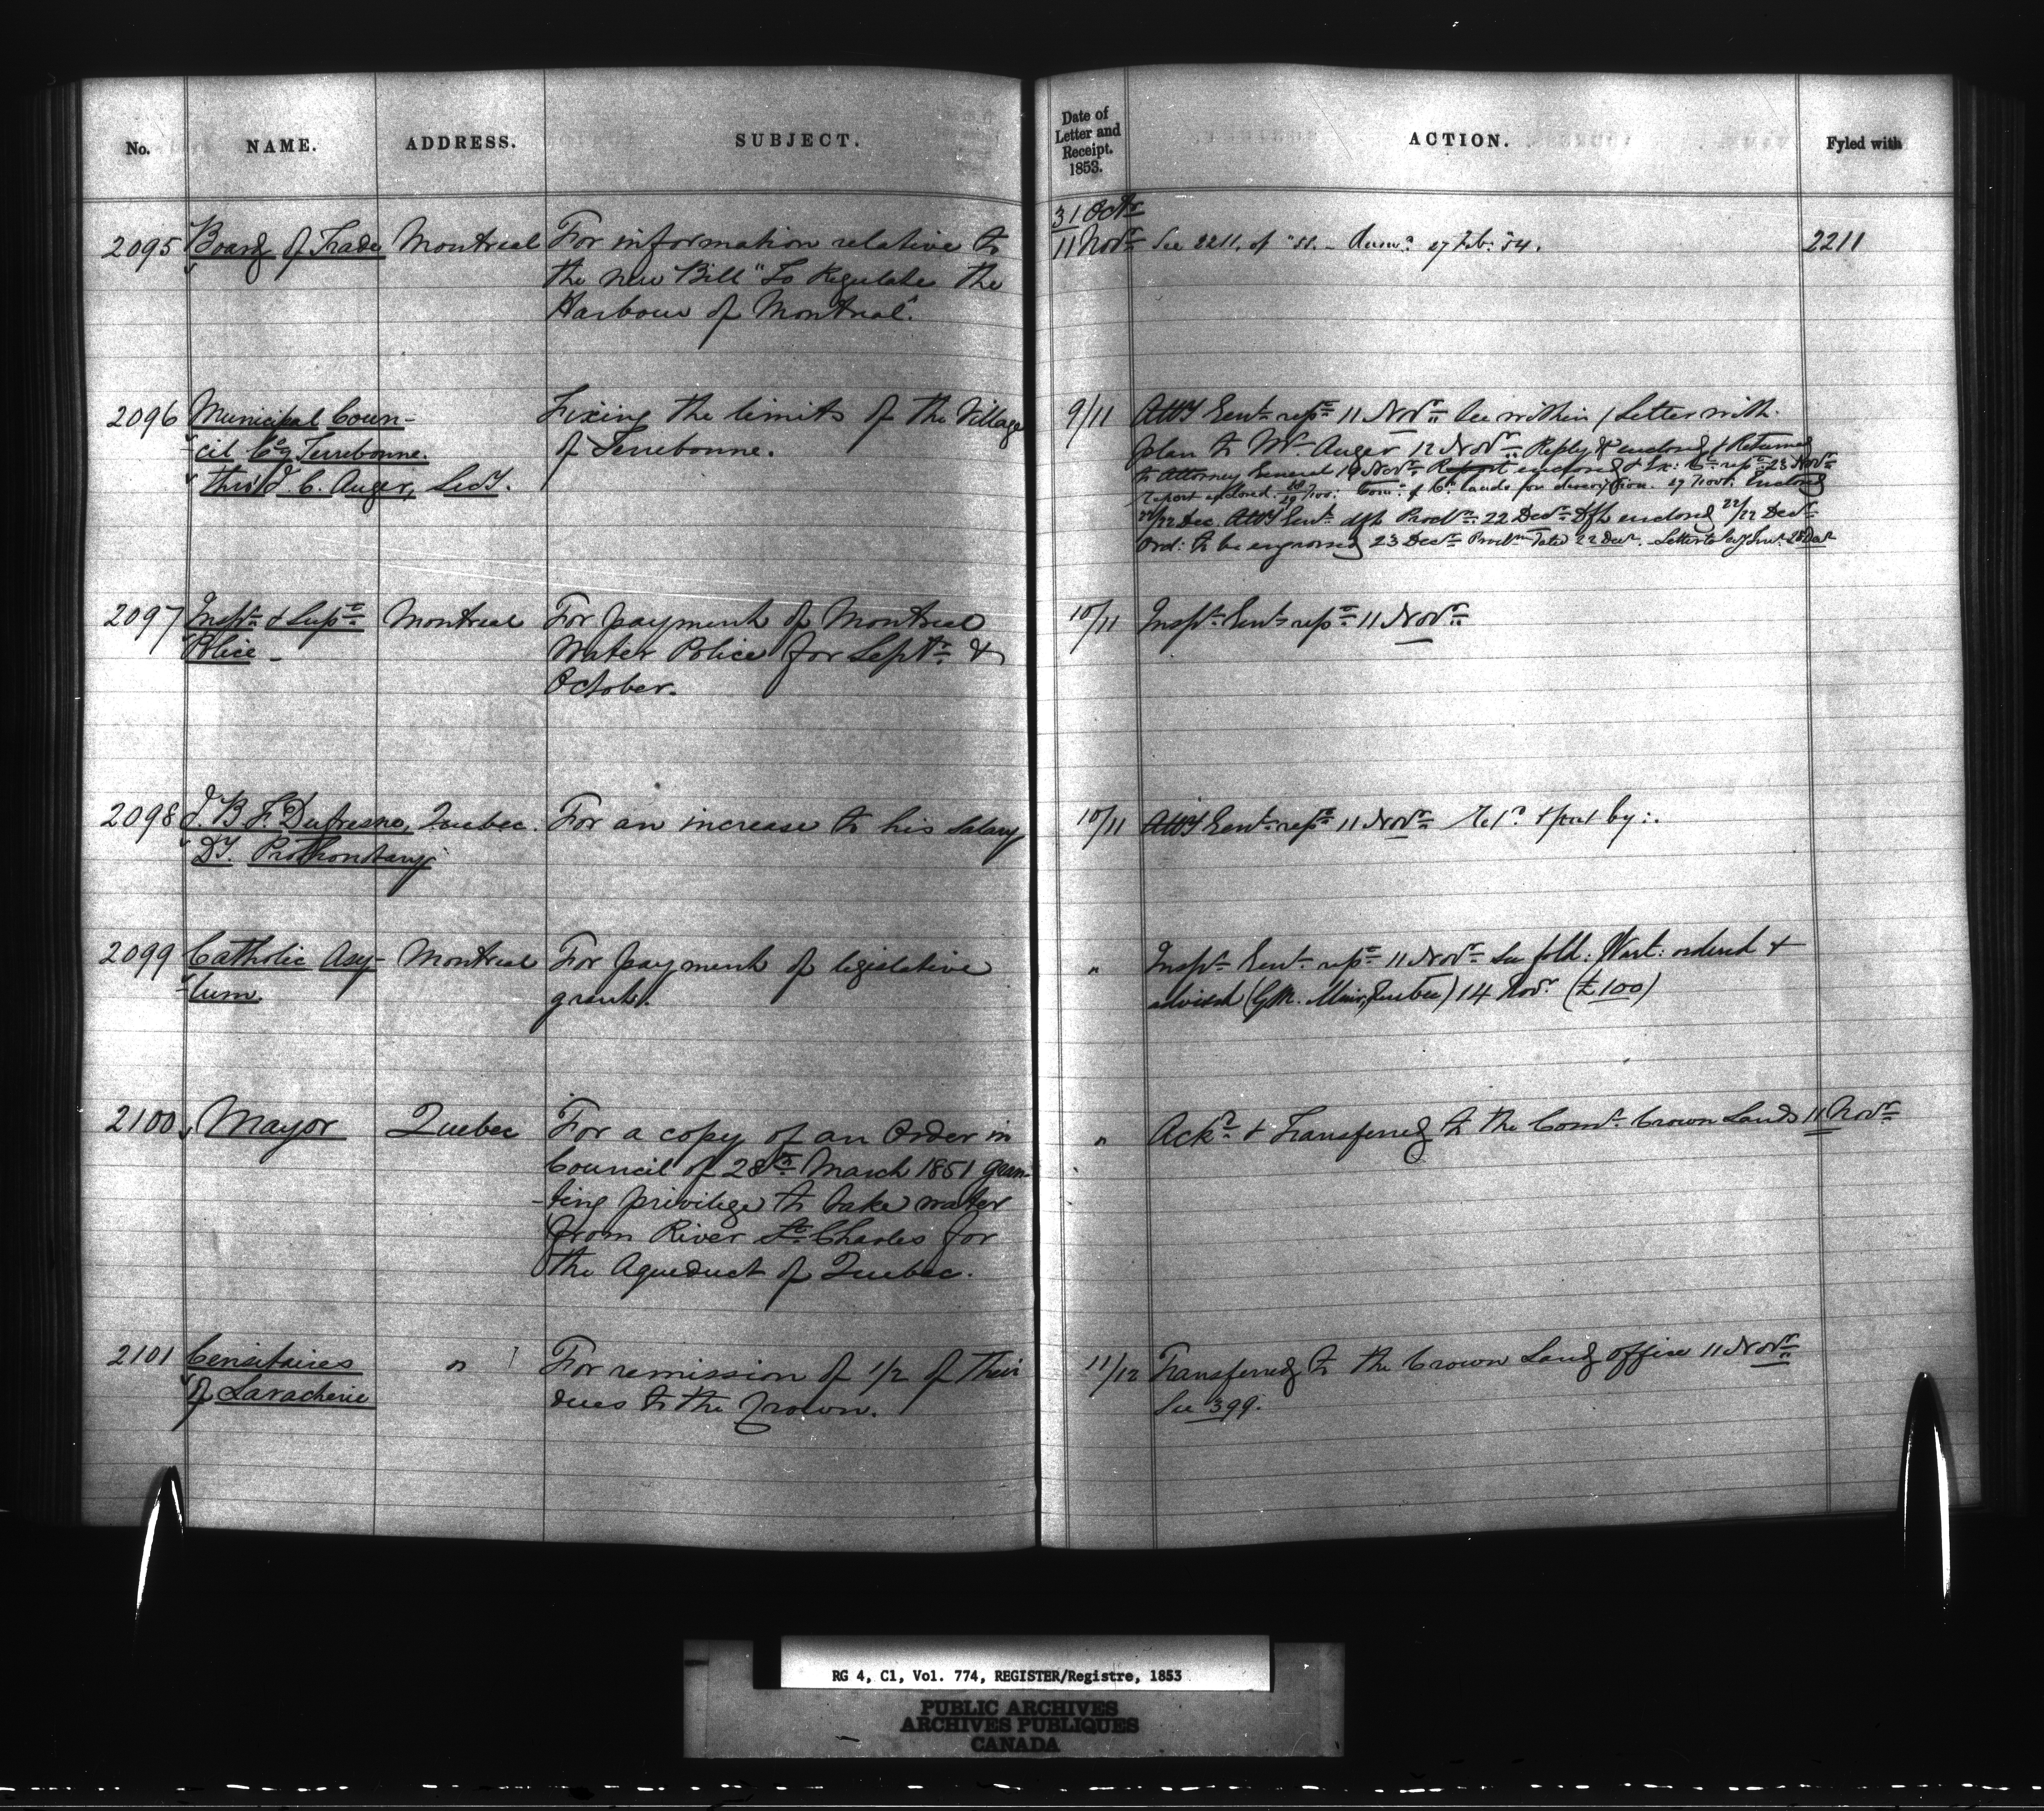 No. NAME. ADDRESS. SUBJECT. Date of Letter and Receipt. 1853. ACTION. Fyled with
2095 Board of Trade Montreal For information relative to
the new Bill "To Regulate the
Harbour of Montreal."
31 Octr
11 Novr See 2211. of 27 Feb: 54. 2211
2096 Municipal Coun-
cil Co Terrebonne.
thro' J. C. Auger, Secy.
Fixing the limits of the Village
of Terrebonne.
9/11 Atty Genl repn 11 Novr See within / Letter with
plan to Mr Auger 12 Novr Reply & enclosed & Returned
to Attorney General 19 Novr Report enclosed & Ex: Cn repn 23 Novr
report enclosed. 28/29 Nov: Comr of Cn Lands for description. 29 Novr: Enclosed
22/22 Dec. Atty Genl dft Procln 22 Decr Dft enclosed 22/22 Decr
Ord: to be engrossed 23 Decr Procln dated 22 Decr. Letter to 28 Decr
2097 Inspr & Supt
Police
Montreal For payment of Montreal
Water Police for Septr &
October.
10/11 Inspr Genl repn 11 Novr
2098 J. B. F. Dufresne,
Dy. Prothonotary
Quebec. For an increase to his salary
10/11 Atty Genl repn 11 Novr Retd & put by:
2099 Catholic Asy-
lum.
Montreal For payment of legislative
grant.
" Inspr Genl repn 11 Novr See fold: Wart: ordered &
advised (G. M. Muir, Quebec) 14 Novr (£100)
2100 Mayor Quebec For a copy of an Order in
Council of 28th March 1851 gran-
-ting privilege to take water
from River St. Charles for
the Aqueduct of Quebec.
" Ackd & Transferred to the Comr Crown Lands 11 Novr
2101 Censitaires
of Lavacherie
" For remission of 1/2 of their
dues to the Crown.
11/12 Transferred to the Crown Land office 11 Novr
See 399.
RG 4, C1, Vol. 774, REGISTER/Registre, 1853
PUBLIC ARCHIVES
ARCHIVES PUBLIQUES
CANADA